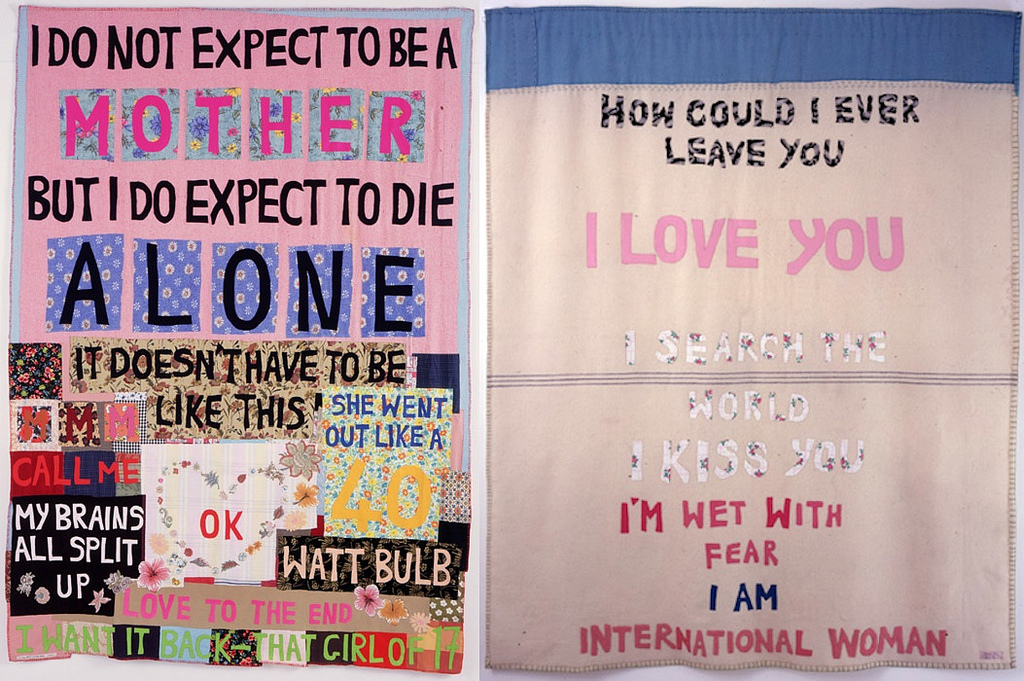 I DO NOT EXPECT TO BE A
MOTHER
BUT I DO EXPECT TO DIE
ALONE
IT DOESN'T HAVE TO BE
LIKE THIS!
MMM
SHE WENT
OUT LIKE A
40
WATT BULB
CALL ME
OK
MY BRAINS
ALL SPLIT
UP
LOVE TO THE END
I WANT IT BACK - THAT GIRL OF 17
HOW COULD I EVER
LEAVE YOU
I LOVE YOU
I SEARCH THE
WORLD
I KISS YOU
I'M WET WITH
FEAR
I AM
INTERNATIONAL WOMAN